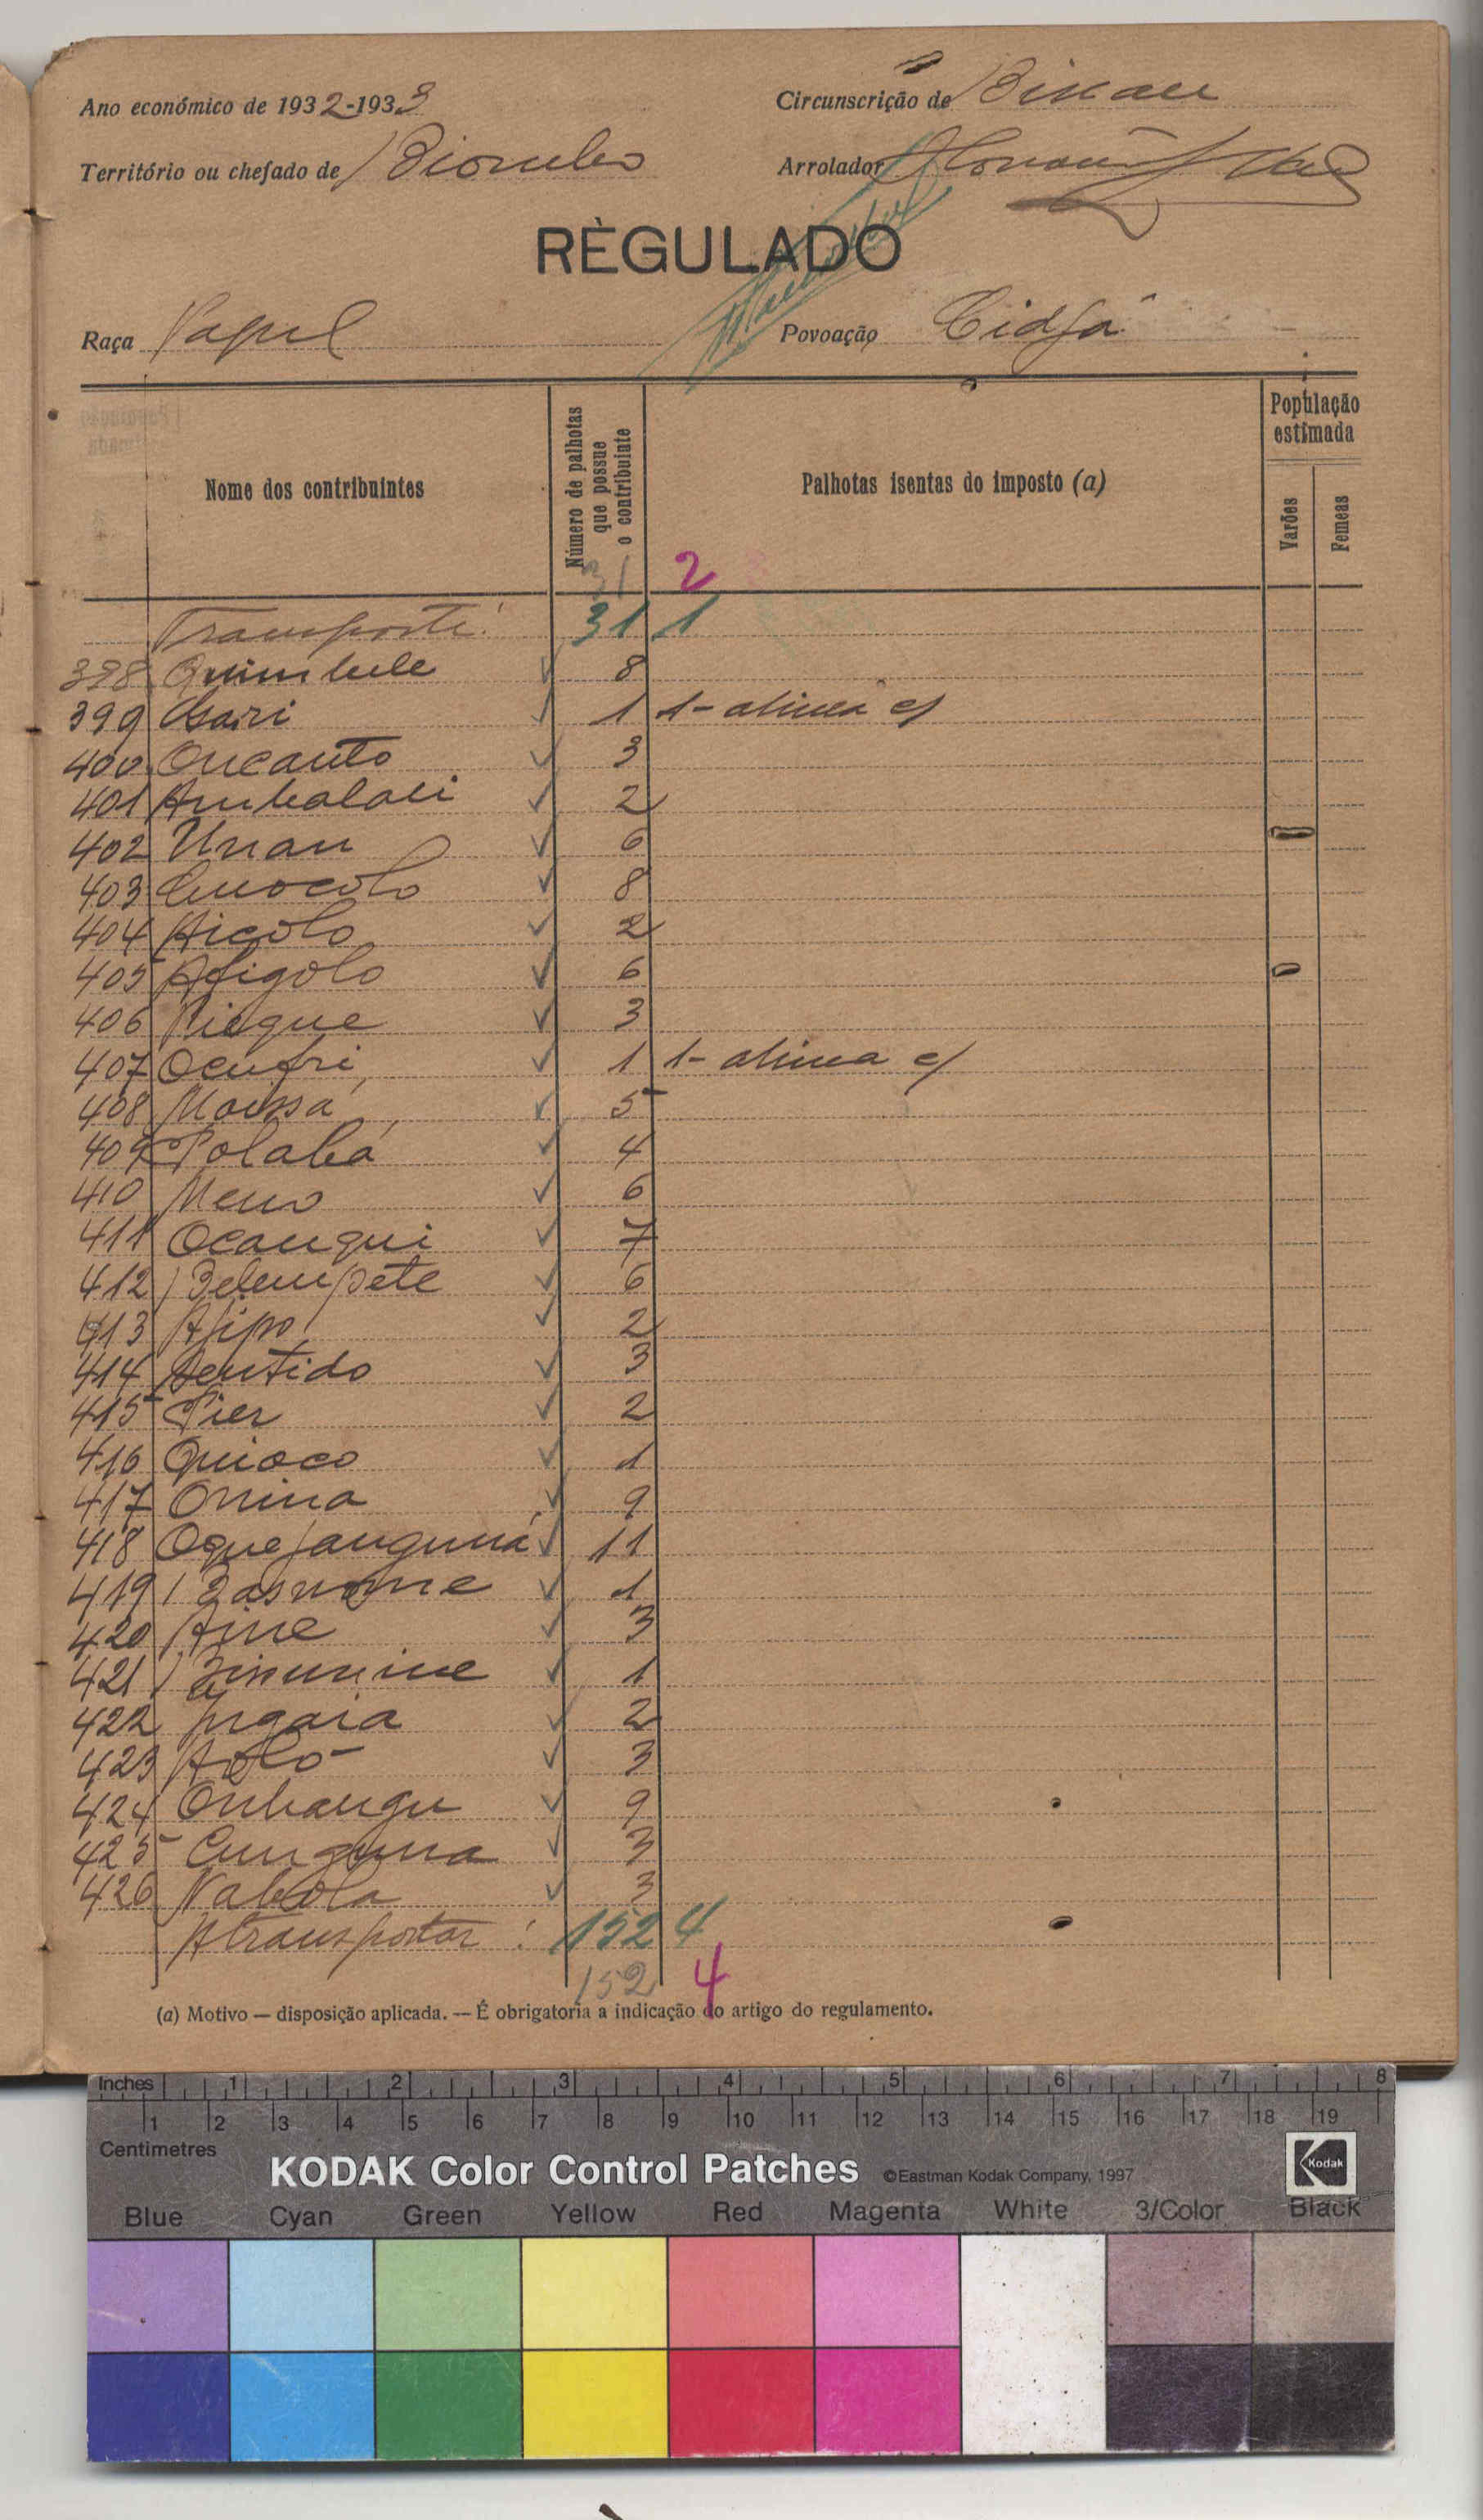 Ano económico de 1932-1933
Circunscrição de Bissau
Território ou chefado de Biombo
Arrolador
RÈGULADO
Raça Papel
Povoação Cidjá
Nome dos contribuintes
Número de palhotas que possue o contribuinte
Palhotas isentas do imposto (a)
População estimada
Varões
Femeas
31 2
Transporte: 31 1
398 Quimbele 8
399 1 1- alinea c)
400 Oncanto 3
401 Ambalali 2
402 Unau 6
403 8
404 Aicolo 2
405 Afigolo 6
406 3
407 Ocufri 1 1- alinea c)
408 Moussá 5
409 Polabá 4
410 Meno 6
411 Ocanqui 7
412 Belempete 6
413 2
414 Sentido 3
415 Pier 2
416 Quioco 1
417 Onina 9
418 11
419 1
420 Aine 3
421 1
422 2
423 3
424 Onhangu 9
425 3
426 Nabola 3
A transportar: 152 4
152 4
(a) Motivo — disposição aplicada. — É obrigatoria a indicação do artigo do regulamento.
Inches 1 2 3 4 5 6 7 8
1 2 3 4 5 6 7 8 9 10 11 12 13 14 15 16 17 18 19
Centimetres
KODAK Color Control Patches ©Eastman Kodak Company, 1997 Kodak
Blue Cyan Green Yellow Red Magenta White 3/Color Black